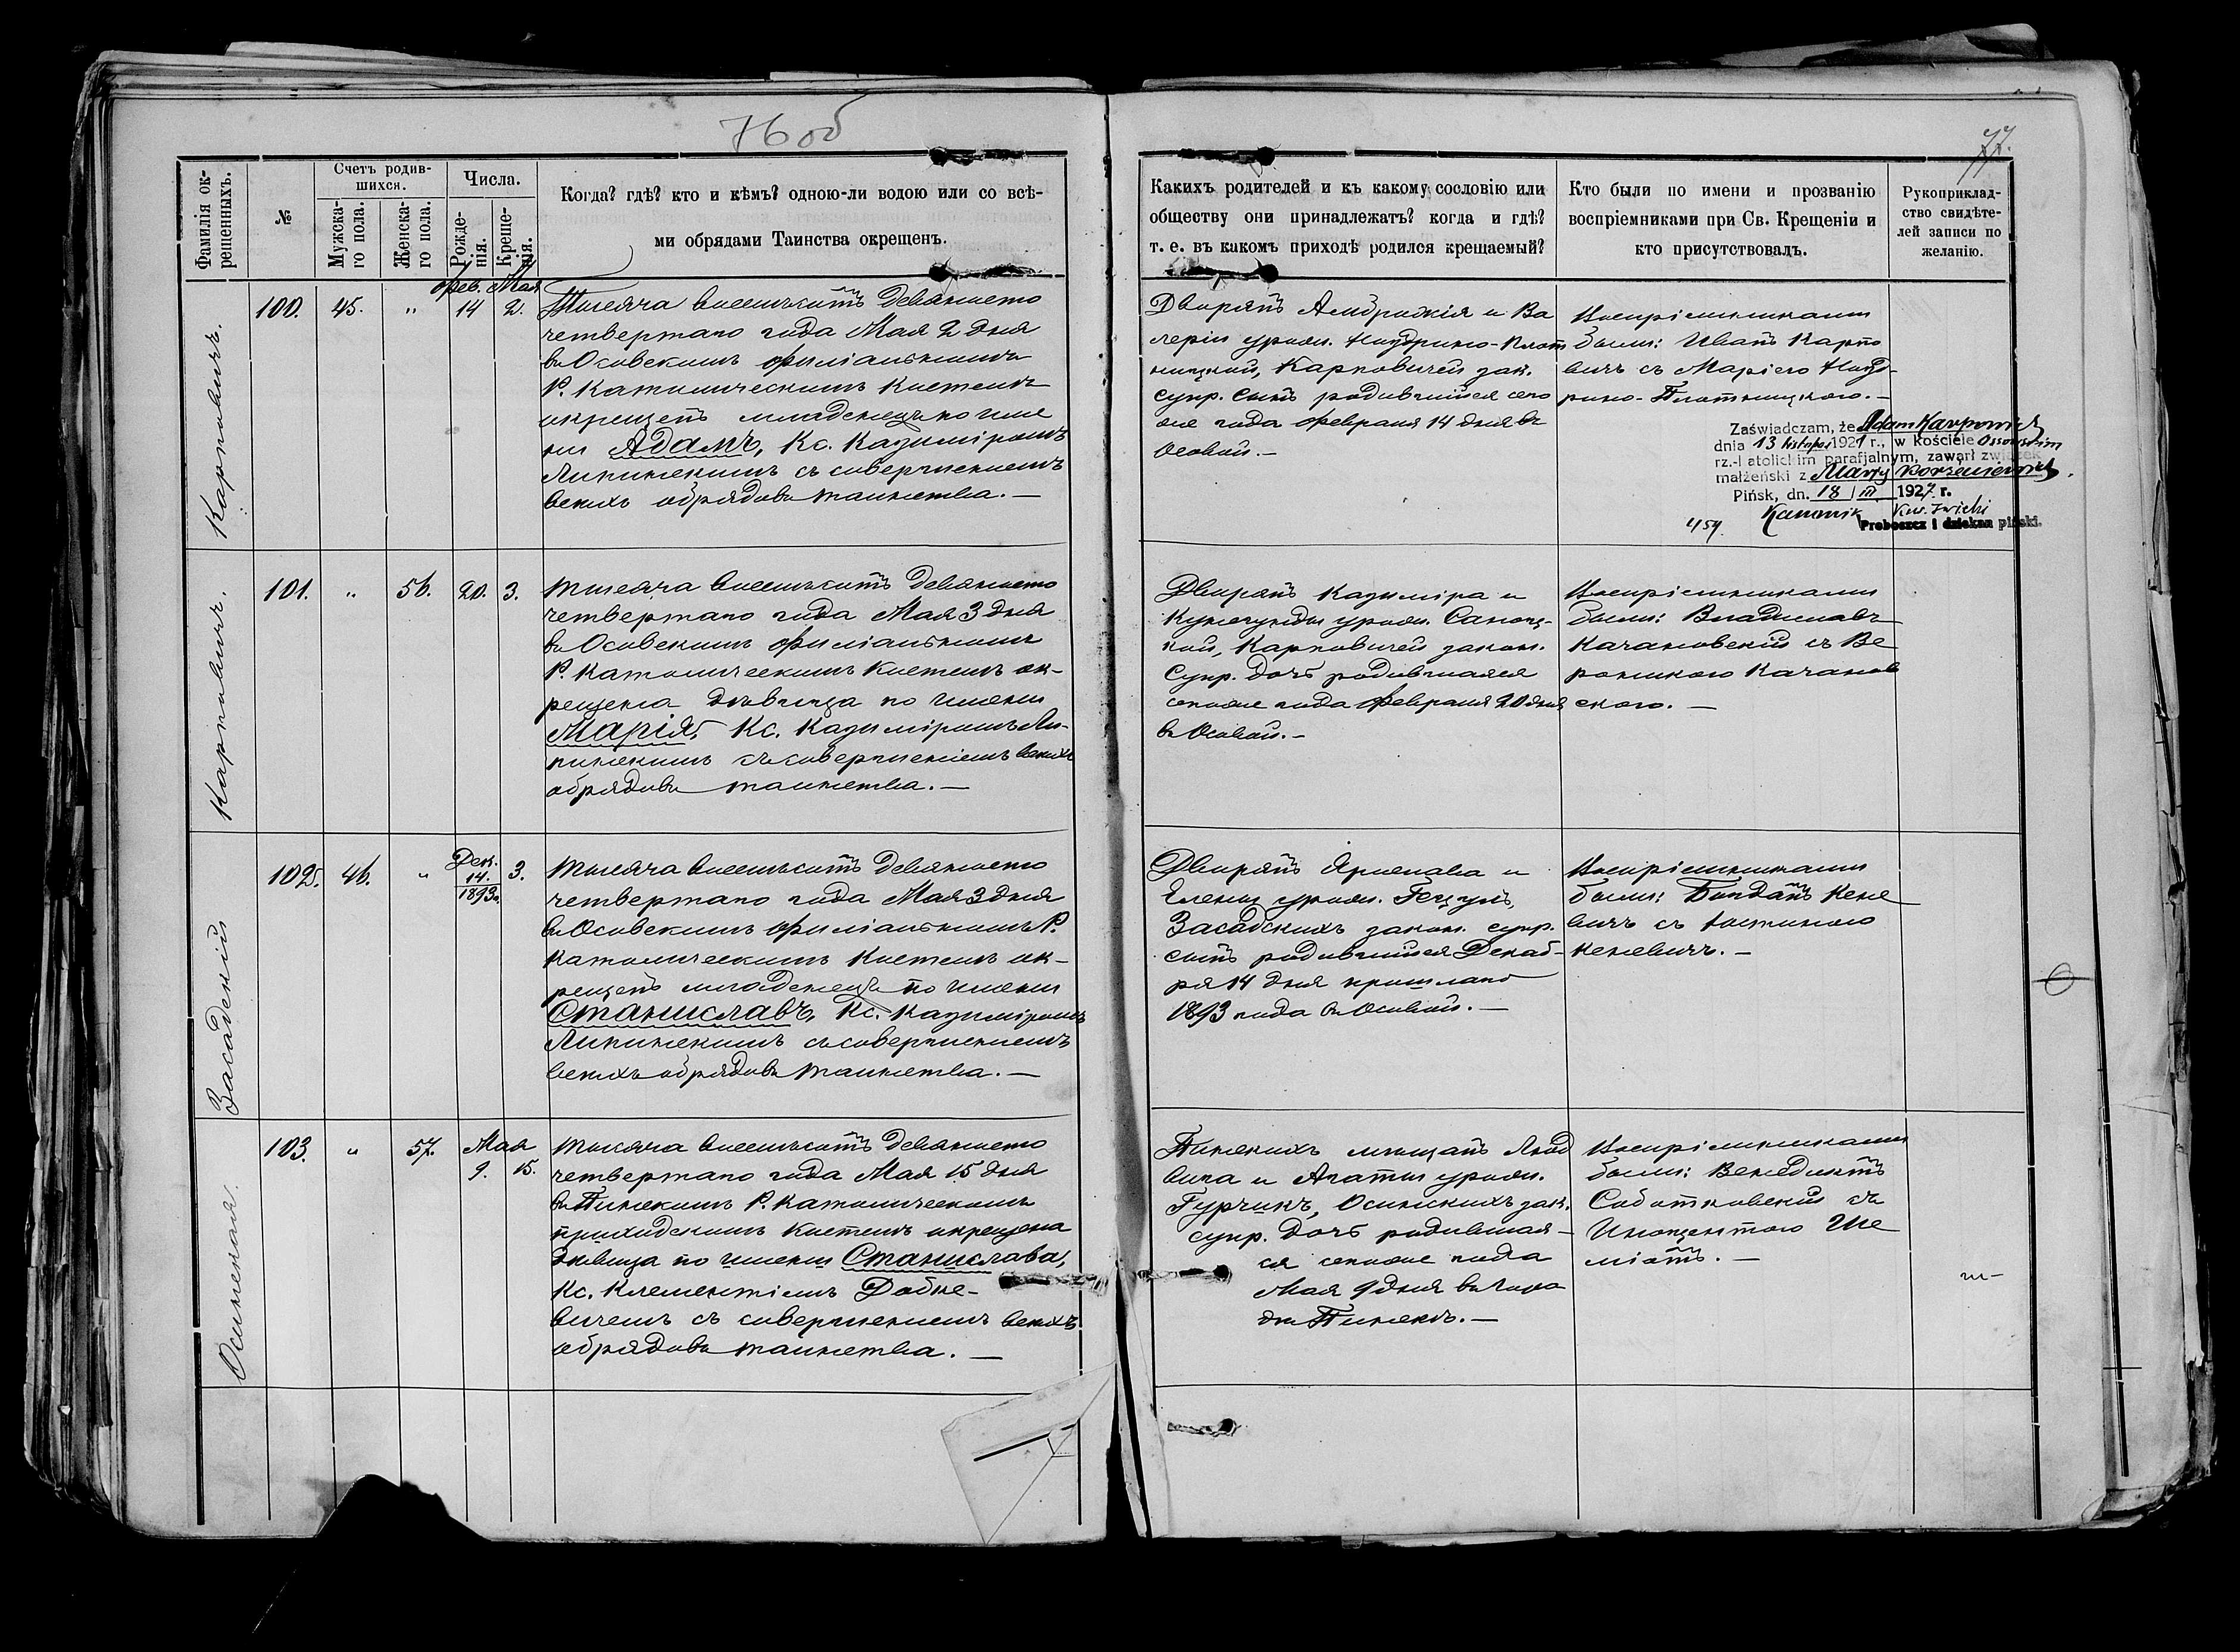 76 об
77.
Фамилія ок-
рещенныхъ.
№
Счетъ родив-
шихся.
Мужска-
го пола.
Женска-
го пола.
Числа.
Рожде-
нія.
Креще-
нія.
Когда? гдѣ? кто и кѣмъ? одною-ли водою или со всѣ-
ми обрядами Таинства окрещенъ.
Какихъ родителей и къ какому сословію или
обществу они принадлежатъ? когда и гдѣ?
т. е. въ какомъ приходѣ родился крещаемый?
Кто были по имени и прозванію
воспріемниками при Св. Крещеніи и
кто присутствовалъ.
Рукоприклад-
ство свидѣте-
лей записи по
желанію.
Карповичъ.
100. 45. " Фев. 14 Мая 2.
Тысяча восемьсотъ девяносто
четвертаго года Мая 2 дня
въ Осовскомъ филіальномъ
Р. Католическомъ Костелѣ
окрещенъ младенецъ по име
ни Адамъ, Кс. Казиміромъ
Липинскимъ съ совершеніемъ
всѣхъ обрядовъ таинства. —
Дворянъ Амброжія и Ва
леріи урожд. -Плот
ницкой, Карповичей зак.
супр. сынъ родившійся сего
же года Февраля 14 дня въ
Осовой. —
Воспріемниками
были: Иванъ Карпо
вичъ съ Маріею
- Плотницкою. —
Zaświadczam, że Adam Karpowicz
dnia 13 listopa 1921 r., w kościele Ossowskim
rz.-katolickim parafjalnym, zawarł związek
małżeński z Marją Korzeniewską.
Pińsk, dn. 18 / III 1927 r.
459. Kanonik Kaz.
Proboszcz i dziekan piński.
Карповичъ.
101. " 56. 20. 3.
Тысяча восемьсотъ девяносто
четвертаго года Мая 3 дня
въ Осовскомъ филіальномъ
Р. Католическомъ Костелѣ ок-
рещена дѣвица по имени
Марія, Кс. Казиміромъ Ли-
пинскимъ съ совершеніемъ всѣхъ
обрядовъ таинства. —
Дворянъ Казиміра и
Кунегунды урожд.
кой, Карповичей закон.
супр. дочь родившаяся
сего же года Февраля 20 дня
въ Осовой. —
Воспріемниками
были: Владиславъ
Качановскій съ Ве
роникою Качанов
скою. —
Засадскій
102. 46. " Дек. 14. 1893 г. 3.
Тысяча восемьсотъ девяносто
четвертаго года Мая 3 дня
въ Осовскомъ филіальномъ Р.
Католическомъ Костелѣ ок-
рещенъ младенецъ по имени
Станиславъ, Кс. Казиміромъ
Липинскимъ съ совершеніемъ
всѣхъ обрядовъ таинства. —
Дворянъ Ярослава и
Елены урожд.
Засадскихъ закон. супр.
сынъ родившійся Декаб-
ря 14 дня прошлаго
1893 года въ Осовой. —
Воспріемниками
были: Богданъ Кене
вичъ съ Юстиною
Кеневичъ. —
Осинская.
103. " 57. Мая 9. 15.
Тысяча восемьсотъ девяносто
четвертаго года Мая 15 дня
въ Пинскомъ Р. Католическомъ
приходскомъ Костелѣ окрещена
дѣвица по имени Станислава,
Кс. Клементіемъ Добке-
вичемъ съ совершеніемъ всѣхъ
обрядовъ таинства. —
Пинскихъ мѣщанъ Люд
вига и Агаты урожд.
Гурчикъ, Осинскихъ зак.
супр. дочь родившая-
ся сего же года
Мая 9 дня въ горо
дѣ Пинскѣ. —
Воспріемниками
были: Венедиктъ
Соботковскій съ
Инноцентою Ше
міотъ. —